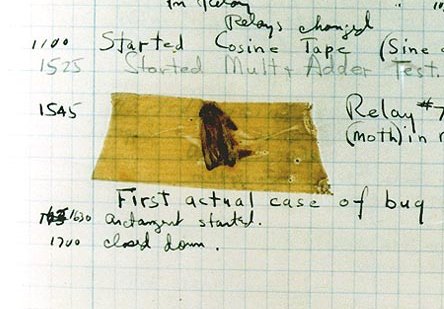 in Relay
Relays changed
1100 Started Cosine Tape (Sine
1525 Started Mult + Adder Test.
1545 Relay #7
(moth) in
First actual case of bug
1630 arctangent started.
1700 closed down.